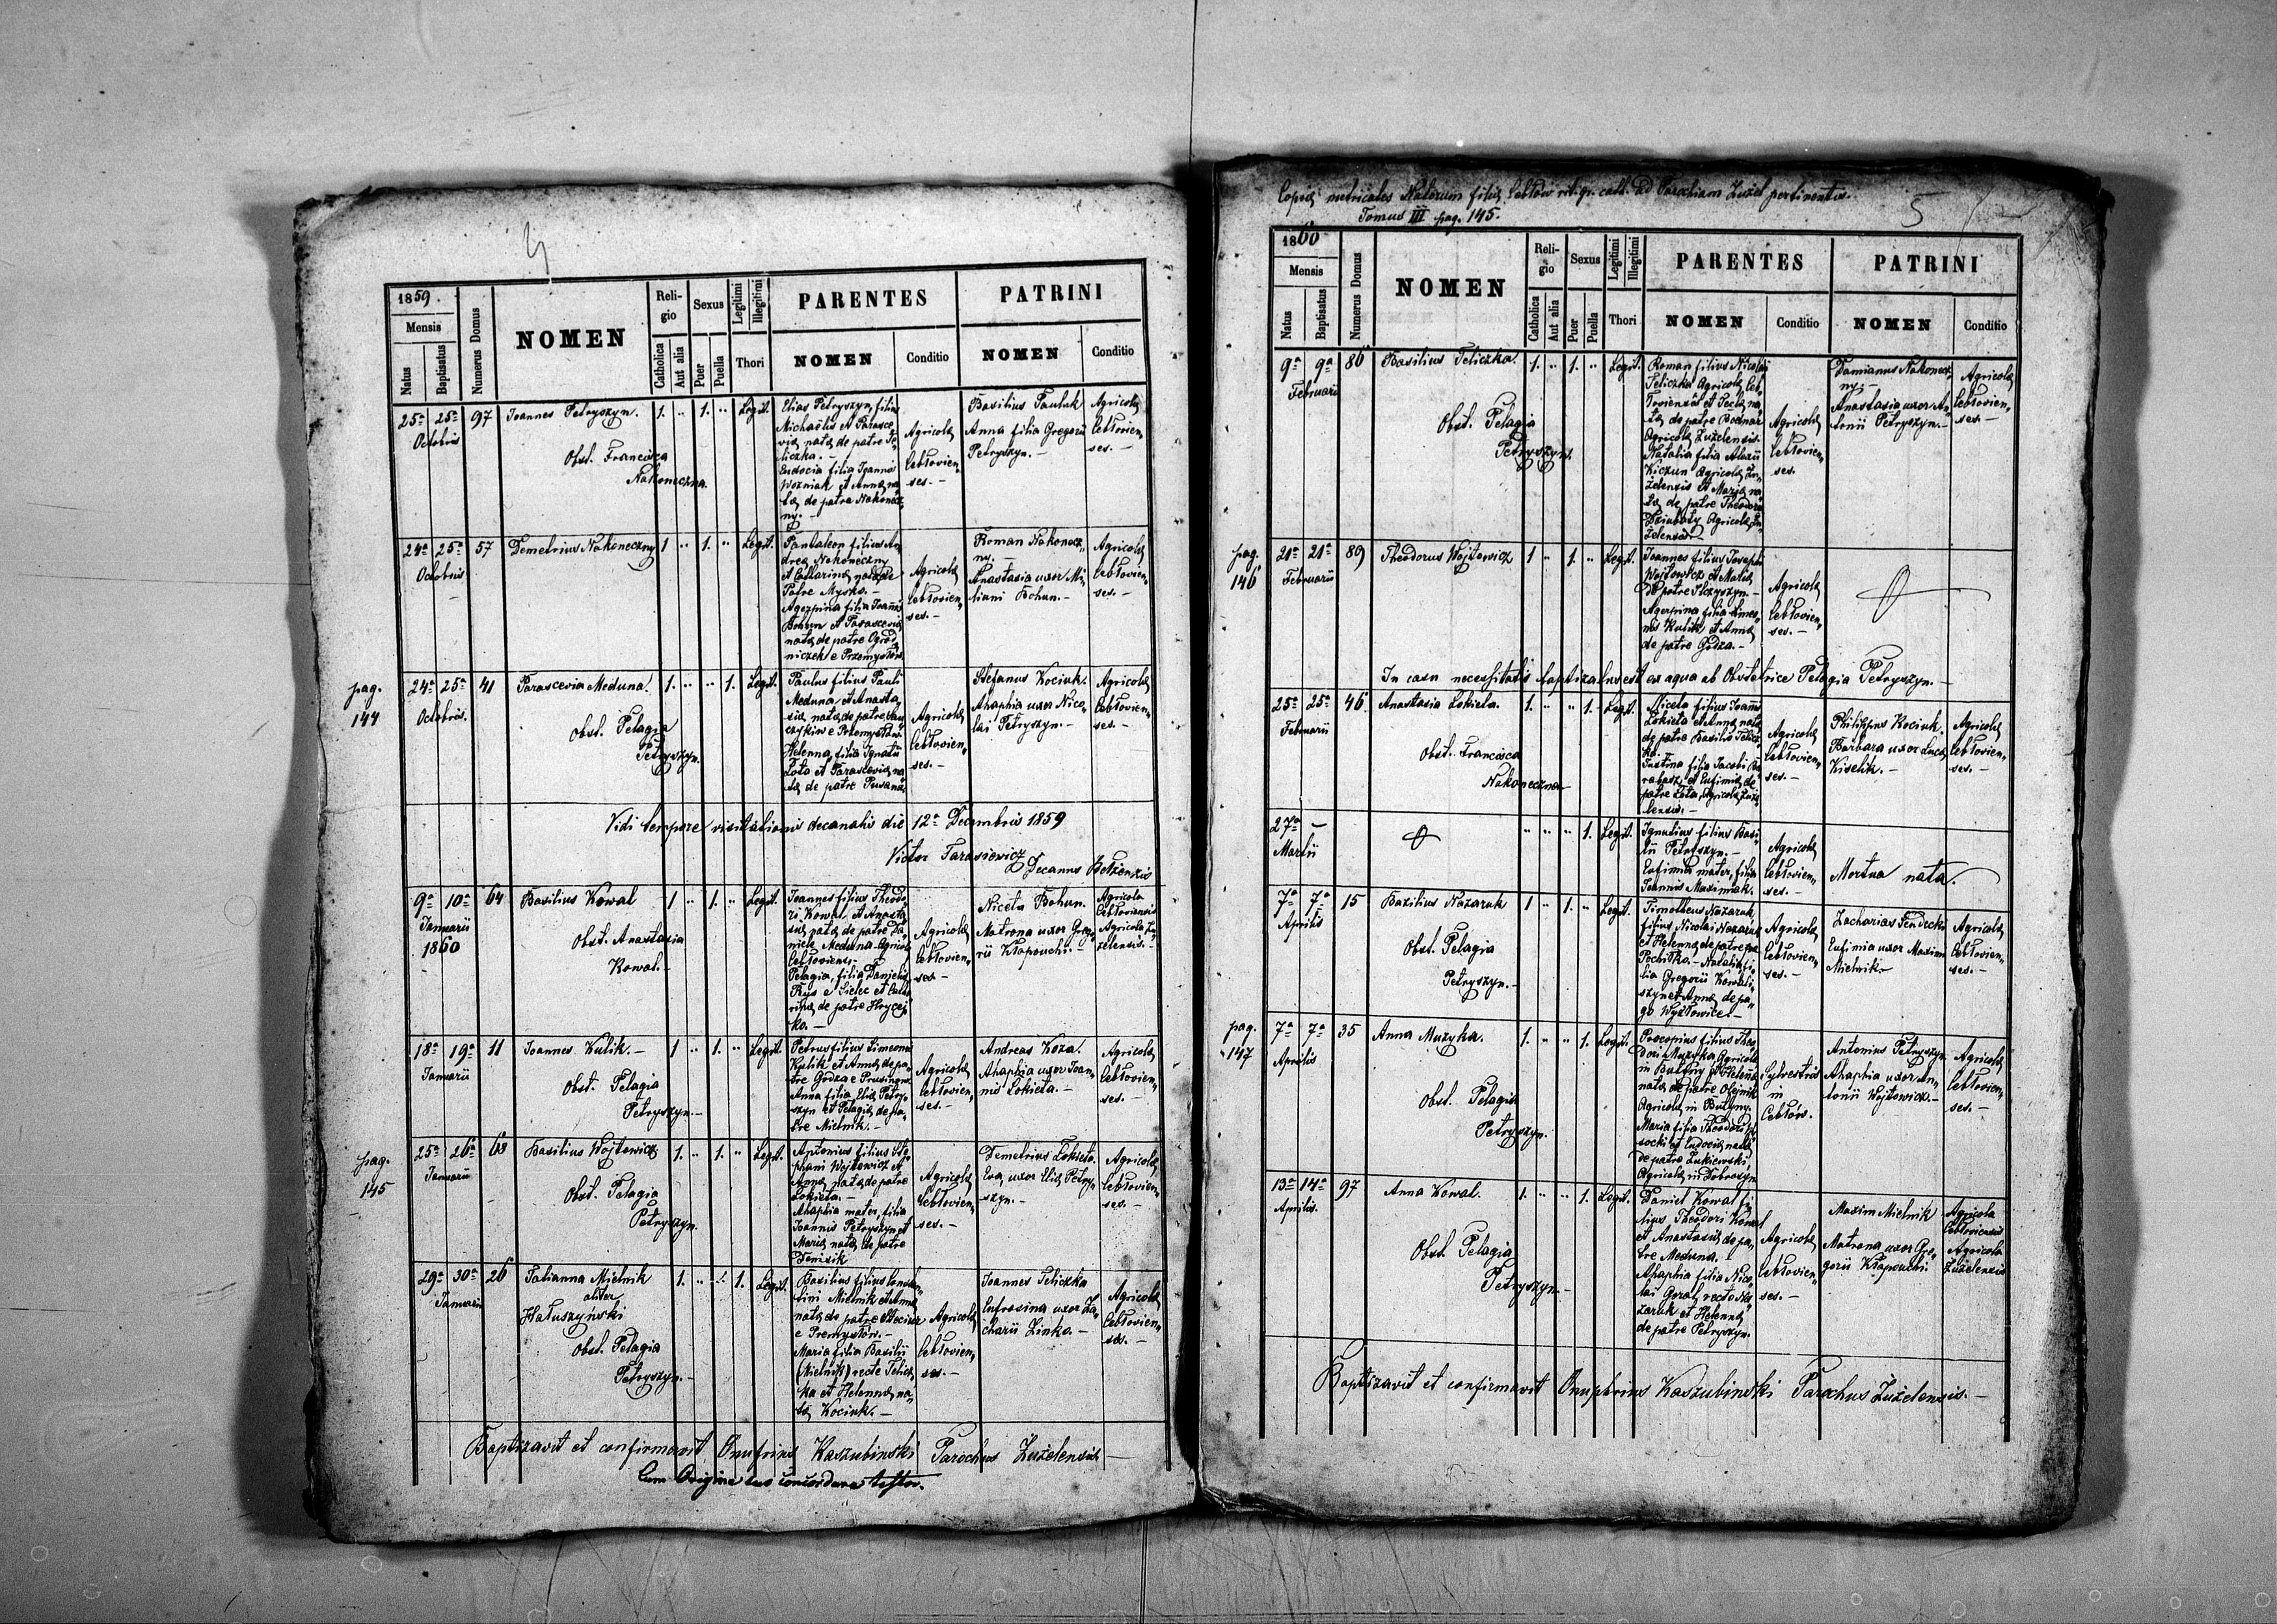 1859.
Mensis
Natus
Baptisatus
Numerus Domus
NOMEN
Religio
Catholica
Aut alia
Sexus
Puer
Puella
Legitimi
Illegitimi
Thori
PARENTES
NOMEN
Conditio
PATRINI
NOMEN
Conditio
25a 25a 97 Joannes Petryszyn. 1. " 1. " Legit.
Octobris
Obst. Francisca
Nakoneczna.
Elias Petryszyn, filius
Michaelis et Parasce„
viæ, natæ de patre Te„
liczka. –
Eudocia filia Joannis
Wozniak et Annæ, na„
tæ, de patre Nakonecz„
ny. –
Agricolæ
Cebłovien„
ses. –
Basilius Pauluk
Anna filia Gregorii
Petryszyn. –
Agricolæ
Cebłovien„
ses. –
24a 25a 57 Demetrius Nakoneczny 1 " 1. " Legit.
Octobris
Pantaleon filius An„
dreæ Nakoneczny
et Catharinæ, natæ de
Patre Mysko. –
Agrypina filia Joannis
Bohun et Parasceviæ
natæ, de patre Ogrod„
niczek e Przemysłow.
Agricolæ
Cebłovien„
ses. –
Roman Nakonecz„
ny. –
Anastasia uxor Mi„
liani Bohun. –
Agricolæ
Cebłovien„
ses. –
pag.
144
24a 25a 41 Parascevia Meduna. 1. " " 1. Legit.
Octobris.
Obst. Pelagia
Petryszyn.
Paulus filius Pauli
Meduna et Anasta„
siæ, natæ, de patre
e Przemysłow.
Helenna, filia Ignatii
Łota et Parasceviæ, na„
tæ, de patre
Agricolæ
Cebłovien„
ses. –
Stefanus Kociuk.
Ahaphia uxor Nico„
lai Petryszyn. –
Agricolæ
Cebłovien„
ses. –
Vidi tempore visitationis decanalis die 12a Decembris 1859
Victor Tarasiewicz
Decanus Bełzensis
9a 10a 64 Basilius Kowal 1 " 1. " Legit.
Januarii
1860
Obst. Anastasia
Kowal. –
Joannes filius Theodo„
ri Kowal et Anasta„
siæ, natæ, de patre Da„
niele Meduna Agricolæ
Cebłoviensis. –
Pelagia, filia Danielis
Rys e Sielec et Catha„
rinæ, de patre Hrycej„
ko. –
Agricolæ
Cebłovien„
ses. –
Niceta Bohun.
Matrona uxor Grego„
rii Kłapouchi. –
Agricola
Cebłoviensis
Agricola Zu„
żelensis. –
18a 19a 11 Joannes Kulik. – 1 " 1. " Legit.
Januarii
Obst. Pelagia
Petryszyn. –
Petrus filius Simeonis
Kulik et Annæ, de pa„
tre Godza e Prusinow.
Anna filia Eliæ Petry„
szyn et Pelagiæ, de pa„
tre Mielnik. –
Agricolæ
Cebłovien„
ses. –
Andreas Koza.
Ahaphia uxor Joan„
nis Łokieta. –
Agricolæ
Cebłovien„
ses. –
pag.
145
25a 26a 68 Basilius Wojtowicz 1. " 1. " Legit.
Januarii
Obst. Pelagia
Petryszyn.
Antonius filius Ste„
phani Wojtowicz et
Annæ, natæ de patre
Łokieta. –
Ahaphia mater, filia
Joannis Petryszyn et
Mariæ, natæ, de patre
Denisik
Agricolæ
Cebłovien„
ses. –
Demetrius Łokieta.
Eva, uxor Eliæ Petry„
szyn. –
Agricolæ
Cebłovien„
ses. –
29a 30a 26 Tatianna Mielnik 1. " 1. Legit.
Januarii
aliter
Hałuszyński
Obst. Pelagia
Petryszyn. –
Basilius filius Constan„
tini Mielnik et Annæ
natæ de patre Steciuk
e Premysłów. –
Maria filia Basilii
(Mielnik) recte Telicz„
ka et Helennæ, na„
tæ, Kociuk. –
Agricolæ
Cebłovien„
ses. –
Joannes Teliczka
Eufrosina uxor Za„
charii Zinko. –
Agricolæ
Cebłovien„
ses. –
Baptizavit et confirmavit Onufrius Kaszubinski Parochus Żużelensis –
Cum Originalibus concordare testor.
Copia metricales Natorum filiæ Cebłów rit. gr. cath. ad Parochiam Żużel pertinentis.
Tomus III pag. 145.
5
1860
Mensis
Natus
Baptisatus
Numerus Domus
NOMEN
Religio
Catholica
Aut alia
Sexus
Puer
Puella
Legitimi
Illegitimi
Thori
PARENTES
NOMEN
Conditio
PATRINI
NOMEN
Conditio
9a 9a 86 Basilius Teliczka. 1. " 1. " Legit.
Februarii
Obst. Pelagia
Petryszyn.
Roman filius Nicolai
Teliczka Agricolæ Ceb„
łoviensis et Teclæ, na„
tæ, de patre Bodnar
Agricolæ Żużelensis.
Natalia filia Alexii
Kiczun Agricolæ, Żu„
żelensis et Mariæ, na„
tæ, de patre Theodoro
Dziubaty Agricolæ, Żu„
żelensis.
Agricolæ
Cebłovien„
ses.
Damianus Nakonecz„
ny. –
Anastasia uxor An„
tonii Petryszyn. –
Agricolæ
Cebłovien„
ses. –
pag.
146
21a 21a 89 Theodorus Wojtowicz 1 " 1. " Legit.
Februarii
Joannes filius Josephi
Wojtowicz et Mariæ
de patre Ilczyszyn. –
Agrypina filia Simeo„
nis Kulik et Annæ,
de patre Godza. –
Agricolæ
Cebłovien„
ses. –
In casu necessitatis baptizatus est ex aqua ab Obstetrice Pelagia Petryszyn. –
25a 25a 46. Anastasia Łokieta. 1. " " 1. Legit.
Februarii
Obst. Francisca
Nakoneczna –
Niceta filius Joannis
Łokieta et Annæ, natæ
de patre Basilio Telicz„
ka.
Justina filia Jacobi Ba„
rabasz, et Eufimiæ, de
patre Łota, Agricolæ Żuże„
lensis. –
Agricolæ
Cebłovien„
ses. –
Philippus Kociuk.
Barbara uxor Lucæ
Kiselik. –
Agricolæ
Cebłovien„
ses. –
27a –
Martii
" " " 1. Legit.
Ignatius filius Basi„
lii Petryszyn. –
Eufimia mater, filia
Joannis Maximiak.
Agricolæ
Cebłovien„
ses. –
Mortua nata.
7a 7a 15 Bazilius Nazaruk 1 " 1. " Legit.
Aprilis
Obst. Pelagia
Petryszyn. –
Timotheus Nazaruk
filius Nicolai Nazaruk
et Helennæ, de patre
Natalia fi„
lia Gregorii Kowali„
szyn et Annæ, de pa„
go Wyżłowice. –
Agricolæ
Cebłovien„
ses. –
Zacharias Fendecki
Eufimia uxor Maximi
Mielnik –
Agricolæ
Cebłovien„
ses. –
pag.
147
7a 7a 35 Anna Muzyka. 1. " " 1. Legit.
Aprilis
Obst. Pelagia
Petryszyn.
Procopius filius Theo„
dori Muzyka Agricolæ
in Butyny et Helennæ
natæ, de patre Olejnik
Agricolæ in Butyny.
Maria filia Theodori
et Eudociæ, natæ
de patre Łukiewski
Agricolæ, in Dobrosyn
Sylvestris
in
Cebłów.
Antonius Petryszyn.
Ahaphia uxor An„
tonii Wojtowicz. –
Agricolæ
Cebłovien„
ses. –
13a 14a 97 Anna Kowal. 1. " " 1. Legit.
Aprilis.
Obst. Pelagia
Petryszyn. –
Daniel Kowal fi„
lius Theodori Kowal
et Anastasiæ de pa„
tre Meduna. –
Ahaphia filia Nico„
lai Goral, recto Na„
zaruk et Helennæ,
de patre Petryszyn.
Agricolæ
Cebłovien„
ses. –
Maxim Mielnik
Matrona uxor Gre„
gorii Kłapouchi
Agricola
Cebłoviensis
Agricola
Żużelensis
Baptizavit et confirmavit Onuphrius Kaszubinski Parochus Żużelensis. –